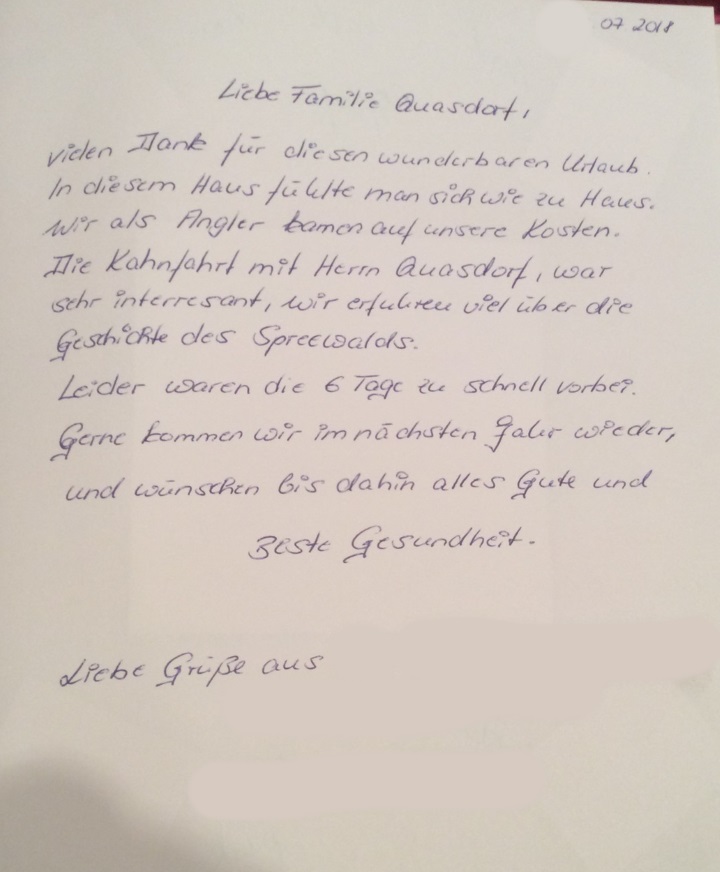 07 2018
Liebe Familie Quasdorf,
vielen Dank für diesen wunderbaren Urlaub.
In diesem Haus fühlte man sich wie zu Haus.
Wir als Angler kamen auf unsere Kosten.
Die Kahnfahrt mit Herrn Quasdorf, war
sehr interresant, wir erfuhren viel über die
Geschichte des Spreewalds.
Leider waren die 6 Tage zu schnell vorbei.
Gerne kommen wir im nächsten Jahr wieder,
und wünschen bis dahin alles Gute und
Beste Gesundheit.
Liebe Grüße aus